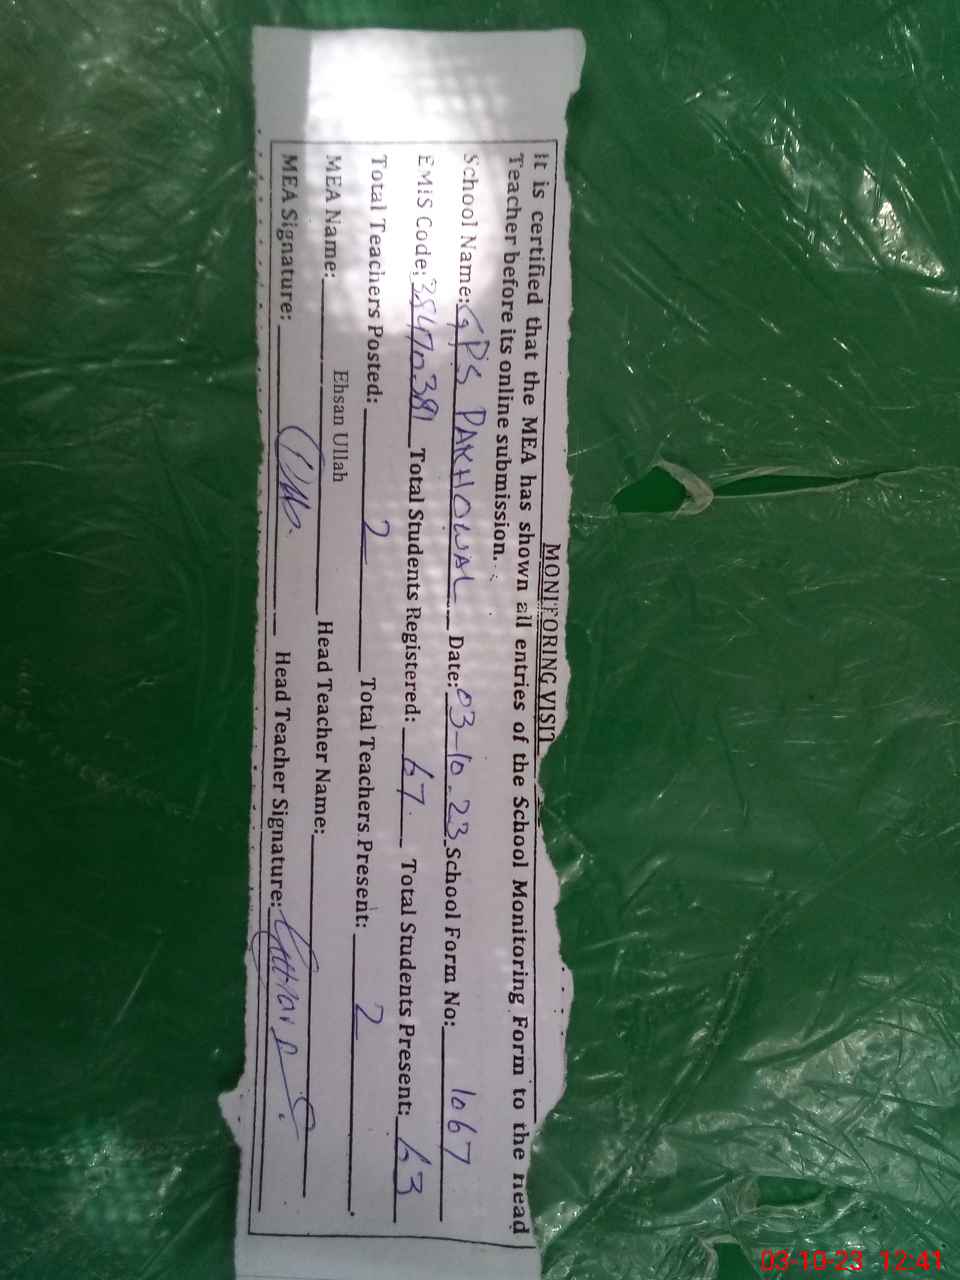 MONITORING VISIT
It is certified that the MEA has shown all entries of the School Monitoring Form to the Head
Teacher before its online submission.
School Name: GPS PAKHOWAL Date: 03-10-23 School Form No: 1067
EMIS Code: 38470381 Total Students Registered: 67 Total Students Present: 63
Total Teachers Posted: 2 Total Teachers Present: 2
MEA Name: Ehsan Ullah Head Teacher Name:
MEA Signature: Head Teacher Signature:
03-10-23 12:41